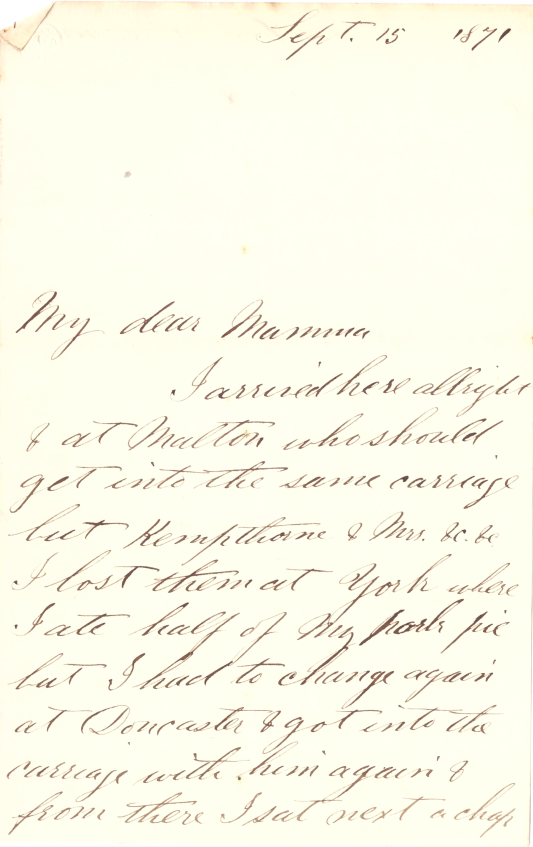 Sept. 15 1871
My dear Mamma
I arrived here allright
& at Malton who should
get into the same carriage
but Kempthorne & Mrs. &c. &c
I lost them at York where
I ate half of my pork pie
but I had to change again
at Doncaster & got into the
carriage with him again &
from there I sat next a chap